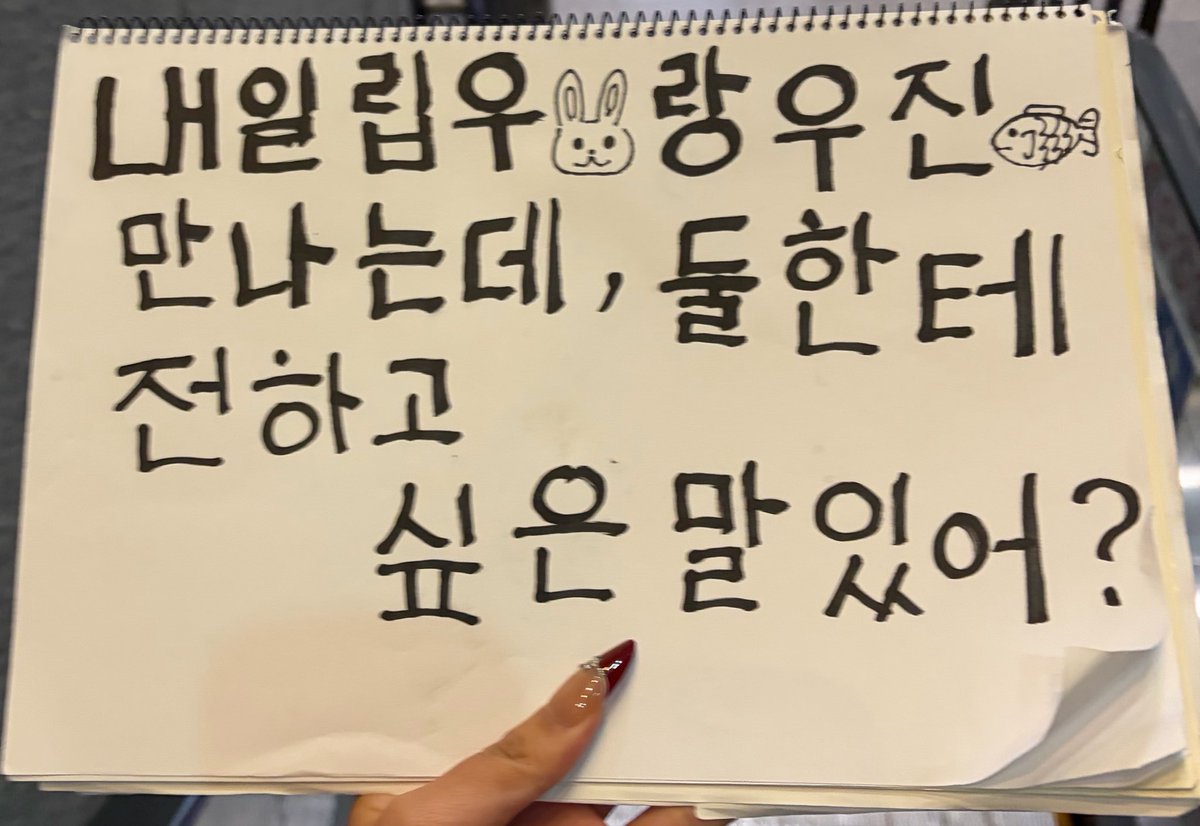 내일 립우랑 우진
만나는데, 둘한테
전하고
싶은 말 있어?